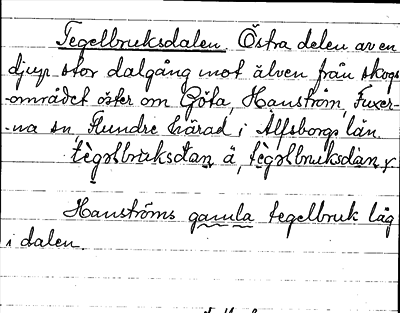 Tegelbruksdalen. Östra delen av en
djup stor dalgång mot älven från skogs
-området öster om Göta, Hanström, Fuxer-
-na sn, Flundre härad i Älfsborgs län.
tègəlbruksdan ä, tègəlbruksdàn y.
Hanströms gamla tegelbruk låg
i dalen.